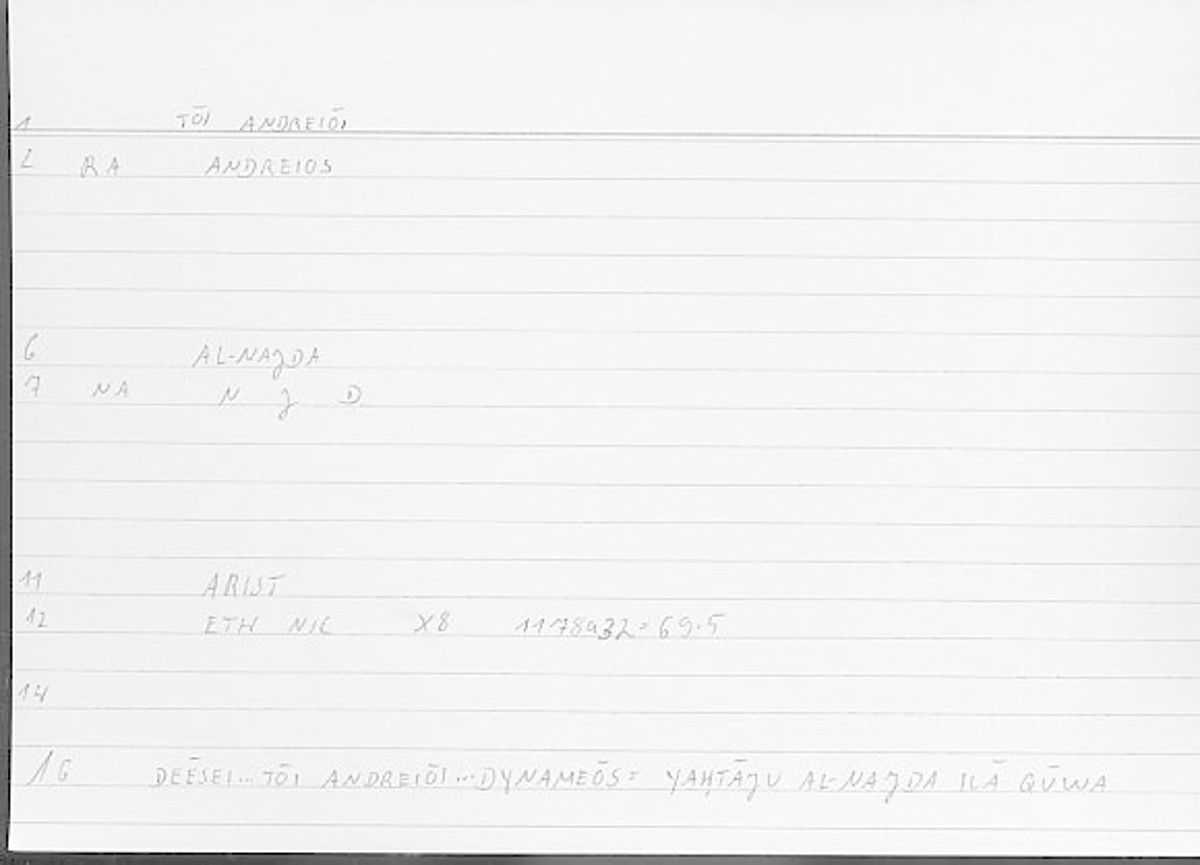 1 TŌI ANDREIŌI
2 RA ANDREIOS
6 AL-NAJDA
7 NA N J D
11 ARIST
12 ETH NIC X8 1178a32=69.5
14
16 DEĒSEI...TŌI ANDREIŌI...DYNAMEŌS= YAḤTĀJU AL-NAJDA ILĀ QŪWA